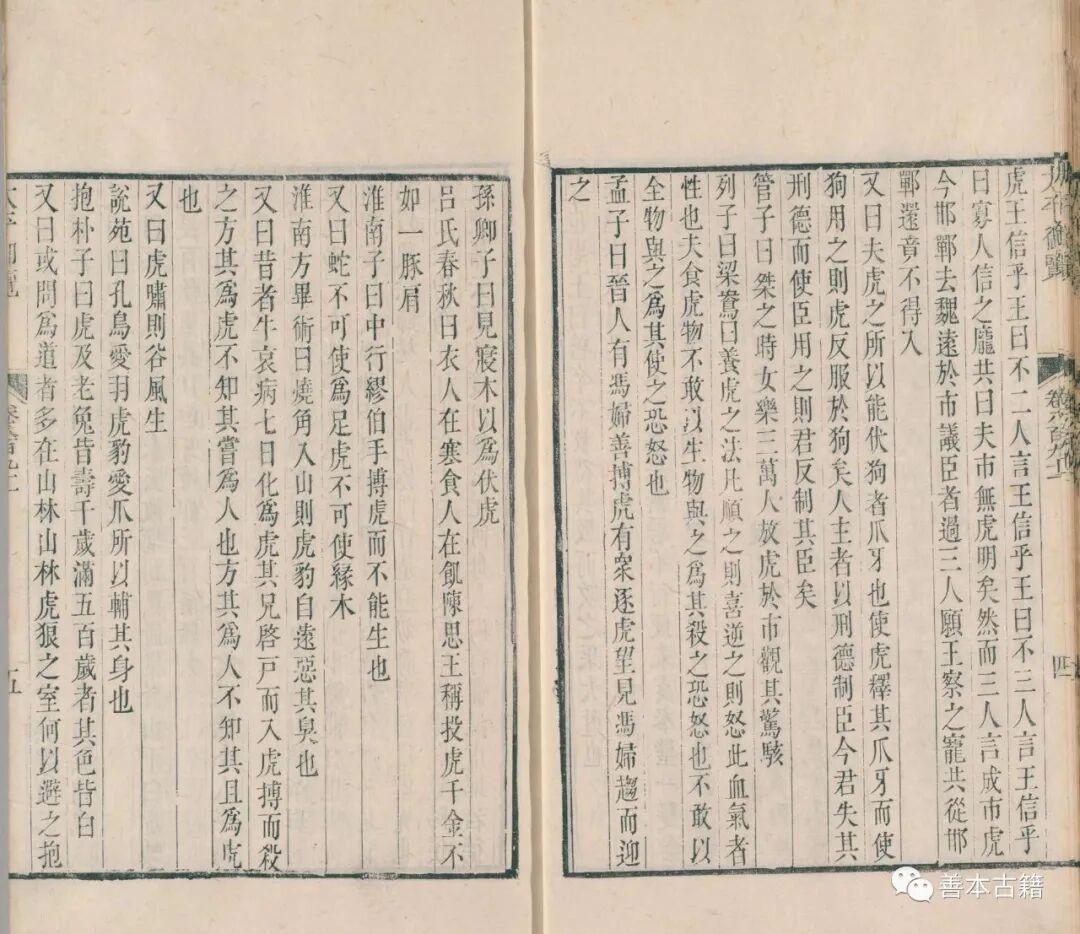 太平御覽
卷八百九十二
四
虎王信乎王曰不二人言王信乎王曰不三人言王信乎
曰寡人信之龐共曰夫市無虎明矣然而三人言成市虎
今邯鄲去魏遠於市議臣者過三人願王察之龐共從邯
鄲還竟不得入
又曰夫虎之所以能伏狗者爪牙也使虎釋其爪牙而使
狗用之則虎反服於狗矣人主者以刑德制臣今君失其
刑德而使臣用之則君反制其臣矣
管子曰桀之時女樂三萬人放虎於市觀其驚駭
列子曰梁鴦曰養虎之法凡順之則喜逆之則怒此血氣者
性也夫食虎物不敢以生物與之爲其殺之恐怒也不敢以
全物與之爲其使之恐怒也
孟子曰晉人有馮婦善搏虎有衆逐虎望見馮婦趨而迎
之
孫卿子曰見寢木以爲伏虎
呂氏春秋曰衣人在寒食人在飢陳思王稱投虎千金不
如一豚肩
淮南子曰中行繆伯手搏虎而不能生也
又曰蛇不可使爲足虎不可使緣木
淮南方畢術曰燒角入山則虎豹自遠惡其臭也
又曰昔者牛哀病七日化爲虎其兄啓戸而入虎搏而殺
之方其爲虎不知其嘗爲人也方其爲人不知其且爲虎
也
又曰虎嘯則谷風生
說苑曰孔鳥愛羽虎豹愛爪所以輔其身也
抱朴子曰虎及老兔皆壽千歲滿五百歲者其色皆白
又曰或問爲道者多在山林山林虎狼之室何以避之抱
五
善本古籍